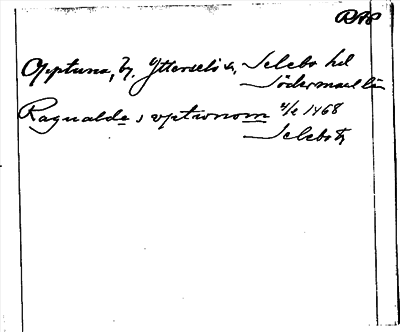 RAP
Optuna, by, Ytterselö sn, Selebo hd
Södermanl län
Ragnalde s optunom 4/2 1468
Selebo tg